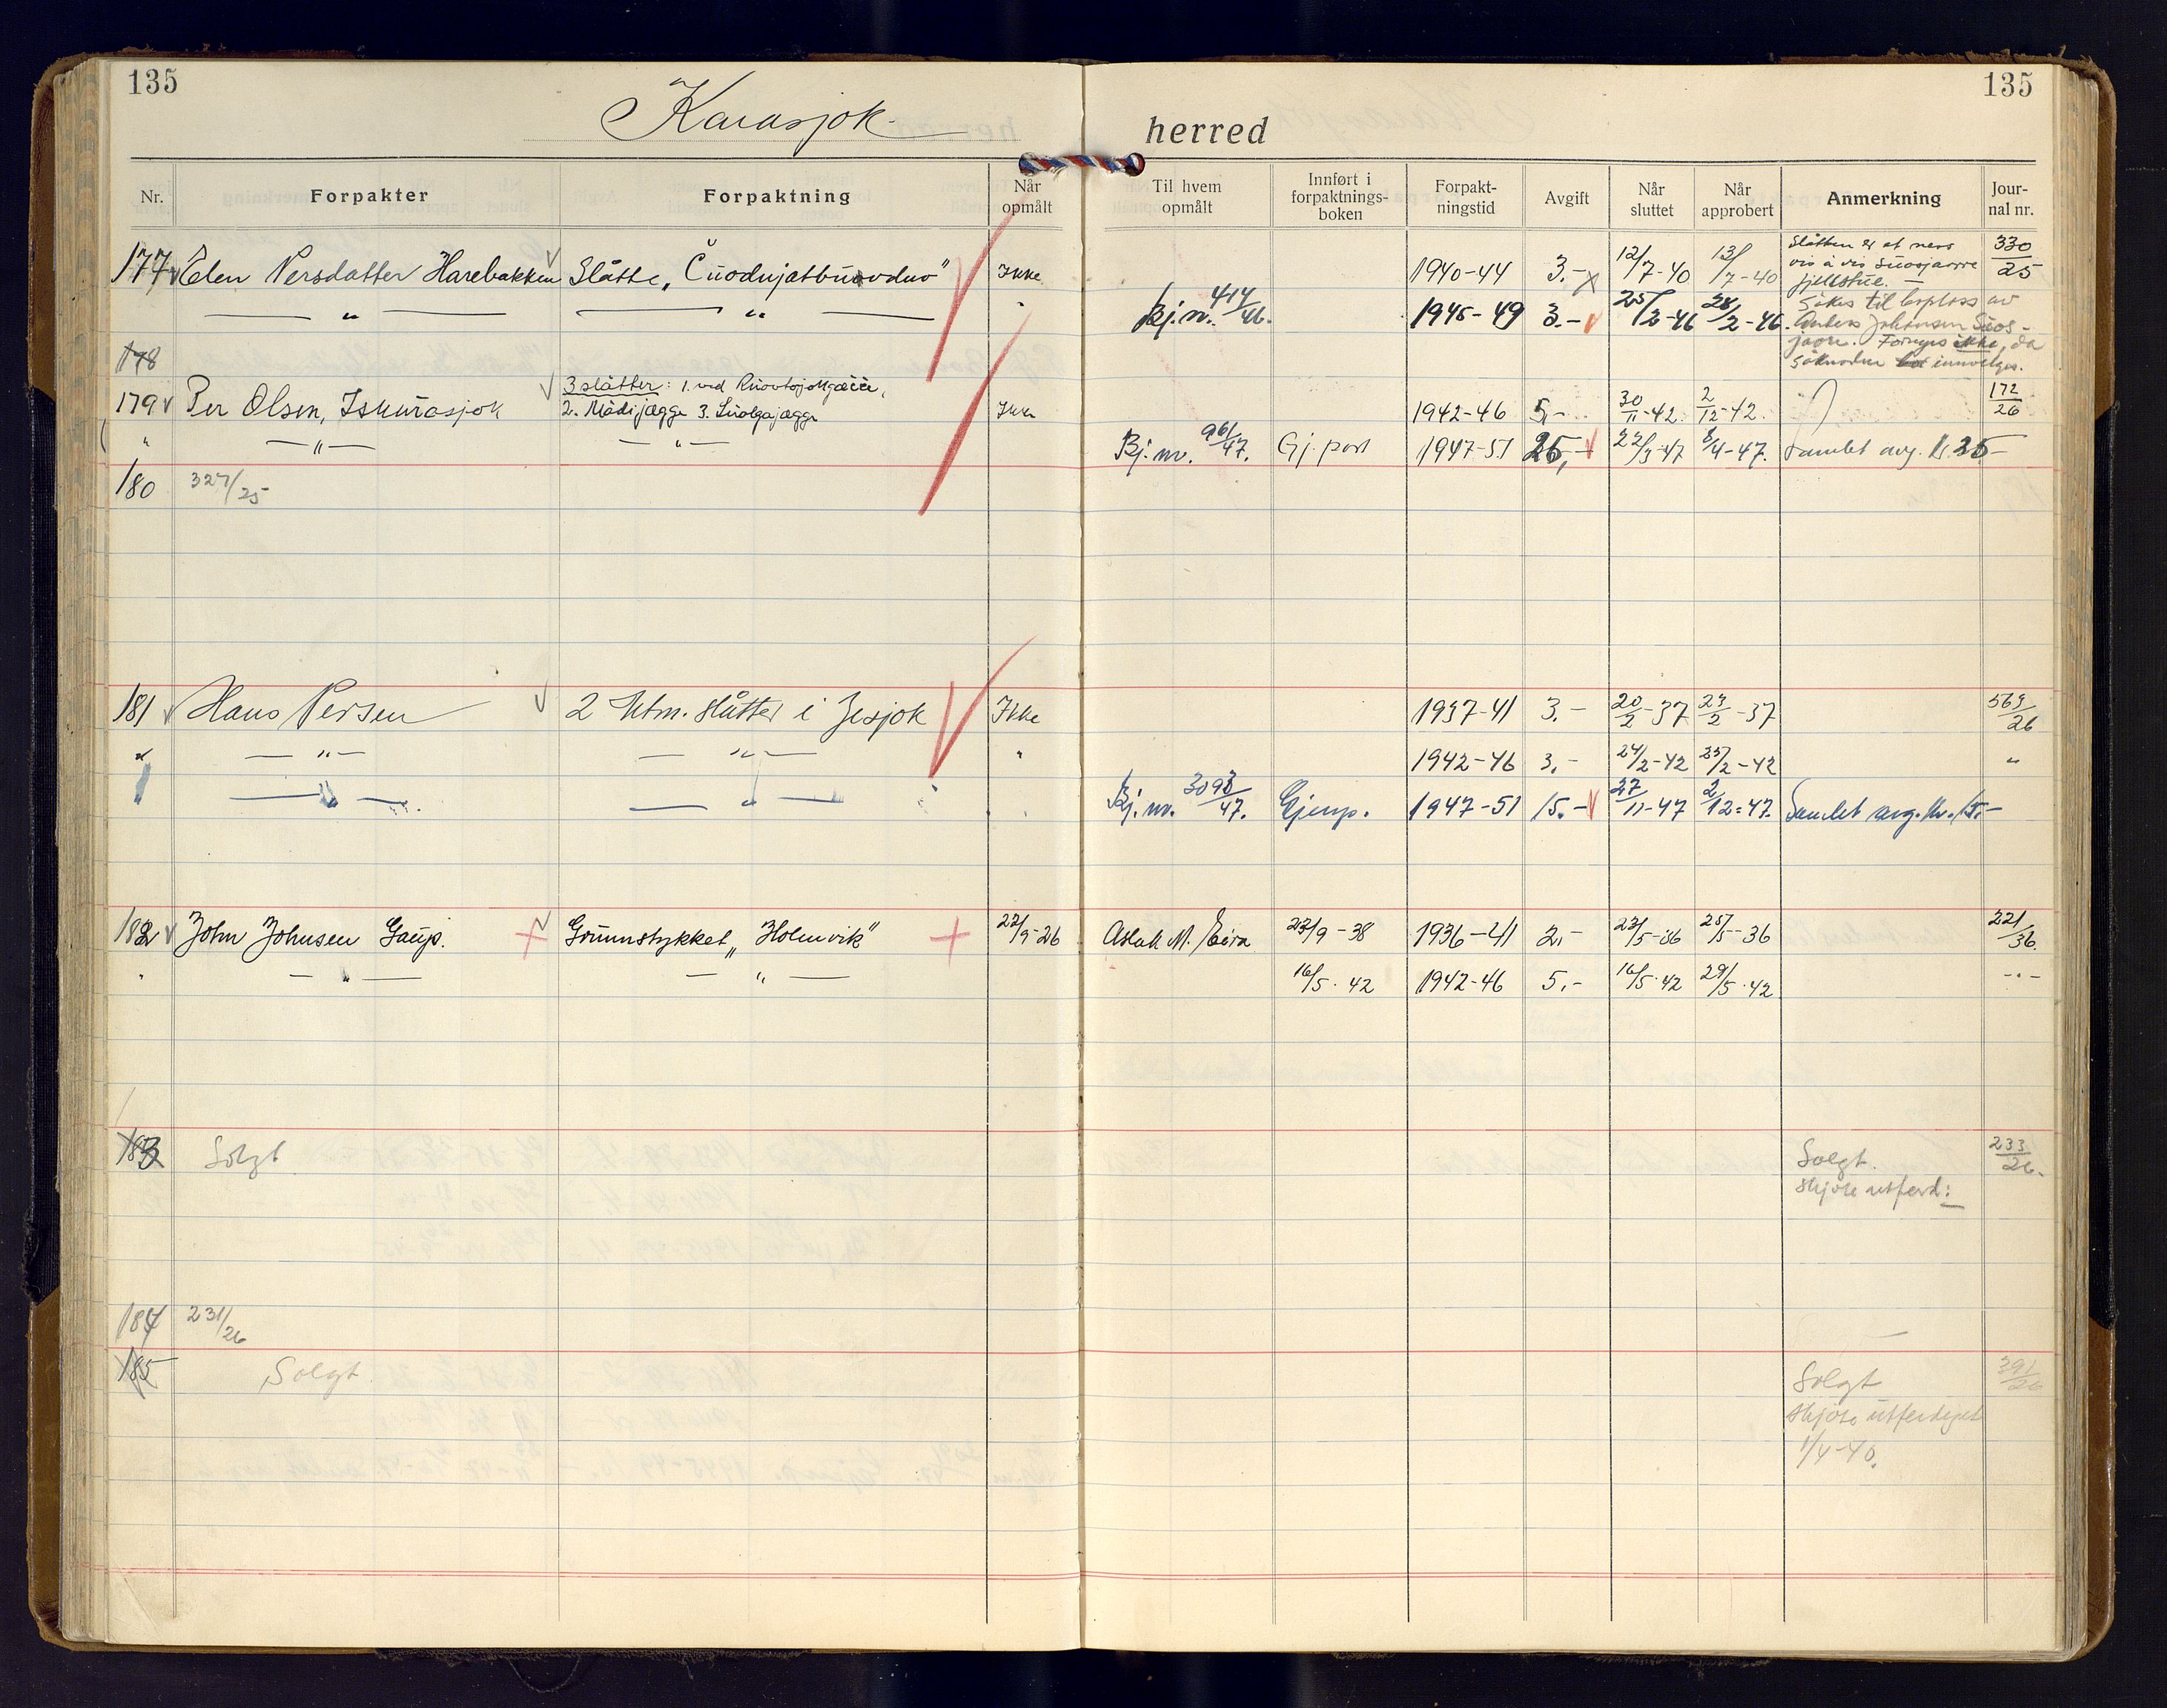 135
135
Karasjok
herred
Nr. Forpakter Forpaktning Når opmålt Til hvem opmålt Innført i forpaktnings-boken Forpakt-ningstid Avgift Når sluttet Når approbert Anmerkning Jour-nal nr.
177 Elen Persdatter Harebakken Slåtte „ Ikke 1940-44 3.- 12/7-40 13/7-40 Slåtten er et nes vis à vis Suosjavrre fjellstue. 330/25
— " — — " — " Bj.nr. 414/46. 1945-49 3.- 25/2-46 28/2-46. Søkes til boplass av
Anders Johansen Suos-
javrre. Fornyes ikke, da
søknaden innvilges.
178
179 Per Olsen, Iskurasjok 3 slåtter: 1. ved
2. Mådijægge 3. Ikke 1942-46 5,- 30/11-42. 2/12-42. 172/26
" — " — — " — Bj. nr. 961/47. Gj.part 1947-51 25,- 22/3-47 8/4-47. Samlet avg. kr. 25-
180 327/25
181 Hans Persen 2 utm. slåtter i Jesjok Ikke 1937-41 3.- 20/2-37 23/2-37 563/26
" — " — — " — " 1942-46 3.- 24/2-42 25/2-42 "
" — " — — " — " Bj. nr. 3093/47. Gjenp. 1947-51 15.- 27/11-47 2/12-47. Samlet avg. kr. 15.-
182 John Johnsen Gaup. Grunnstykket „Holmvik" 22/9-26 Aslak M. Eira 23/9-38 1936-41 2.- 23/5-36 25/5-36 221/36.
" — " — — " — 16/5.42 1942-46 5.- 16/5.42 29/5.42 - " -
183 Solgt Solgt. 233/26.
skjøte utferd:
184 231/26
185 Solgt. Solgt 391/26
skjøte utferdiget
1/4-40.